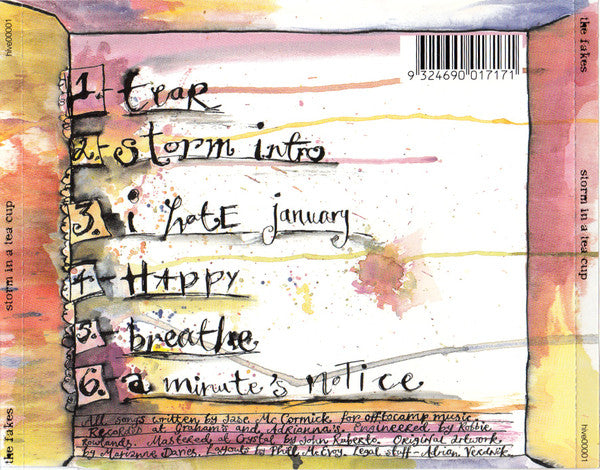 hive00001
storm in a tea cup
the fakes
9 324690 017171
1. tear
2. storm intro
3. i hate january
4. Happy
5. breathe
6. a minute's notice
All songs written by Jase McCormick for offtocamp music.
Recorded at Graham's and Adrianna's. Engineered by Robbie
Rowlands. Mastered at Crystal by John Ruberto. Original Artwork
by Marianne Davies. Layout by Phil McEvoy. Legal stuff - Adrian
the fakes
storm in a tea cup
hive00001